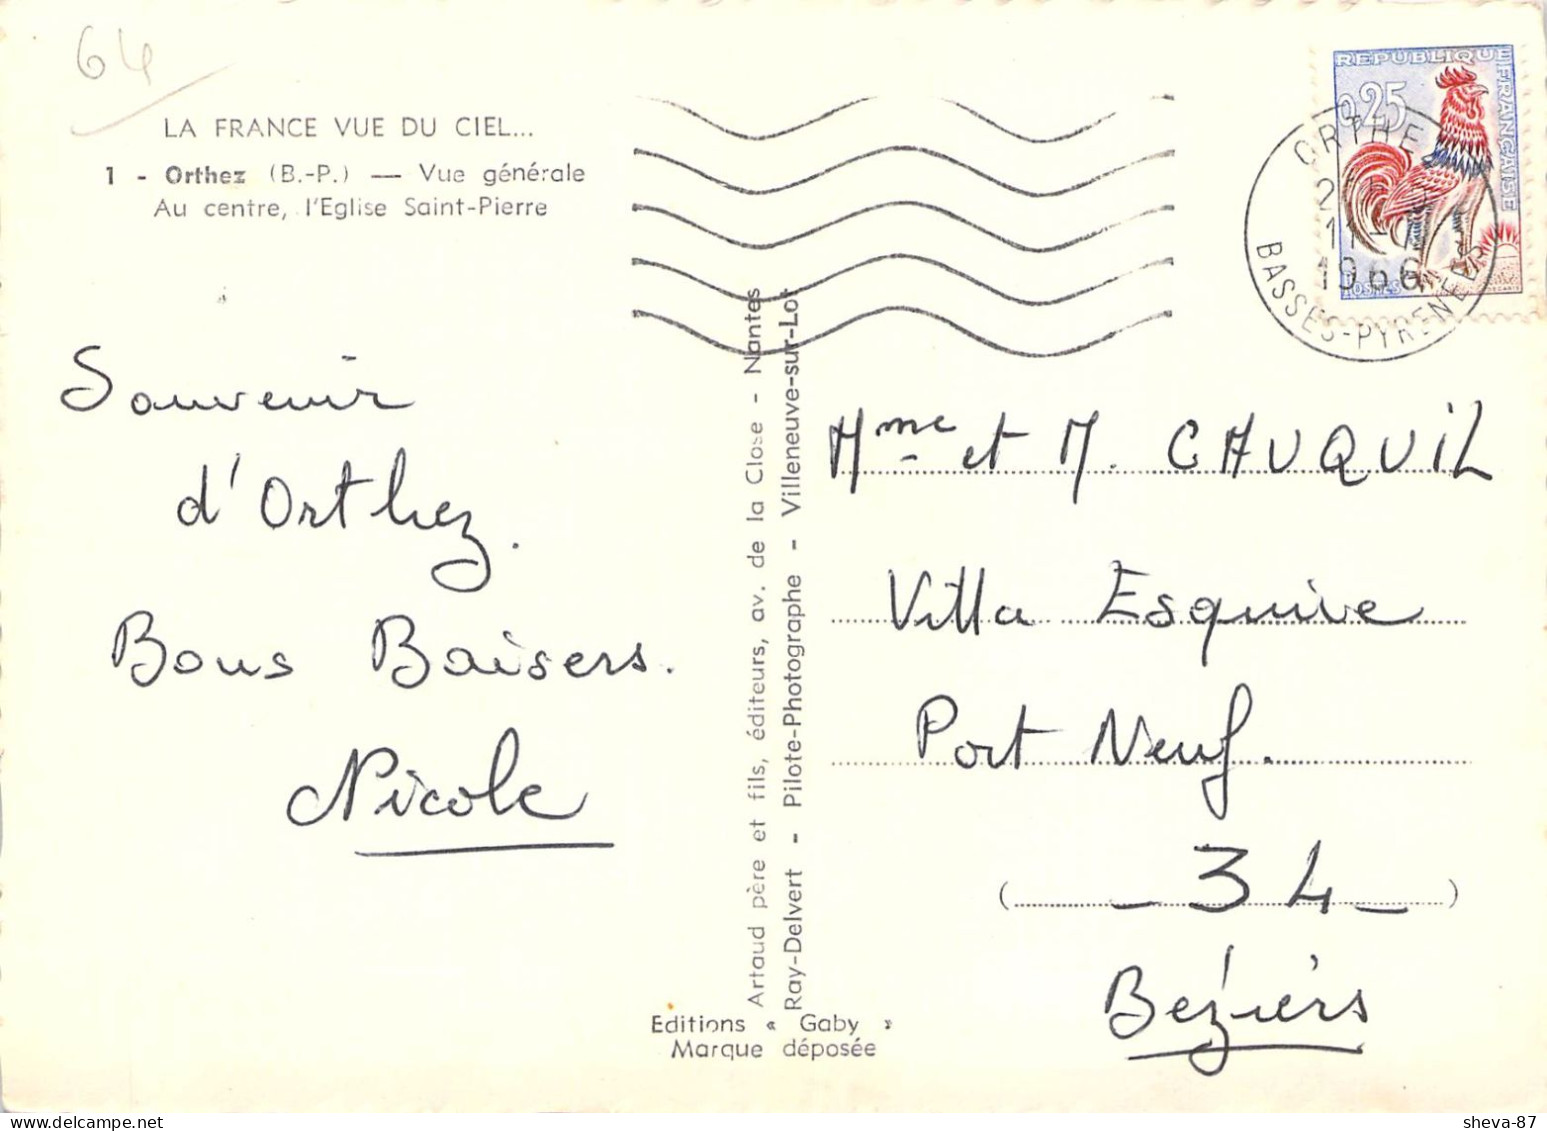 64
LA FRANCE VUE DU CIEL...
1 - Orthez (B.-P.) — Vue générale
Au centre, l'Eglise Saint-Pierre
Souvenir
d'Orthez.
Bons Baisers.
Nicole
Artaud père et fils, éditeurs, av. de la Close - Nantes
Ray-Delvert - Pilote-Photographe - Villeneuve-sur-Lot
Editions « Gaby »
Marque déposée
REPUBLIQUE FRANÇAISE
0,25
POSTES
ORTHEZ
11-
1966
BASSES-PYRENEES
Mme et M. CAUQUIL
Villa Esquive
Port Neuf.
(- 34 -)
Béziers
sheva-87